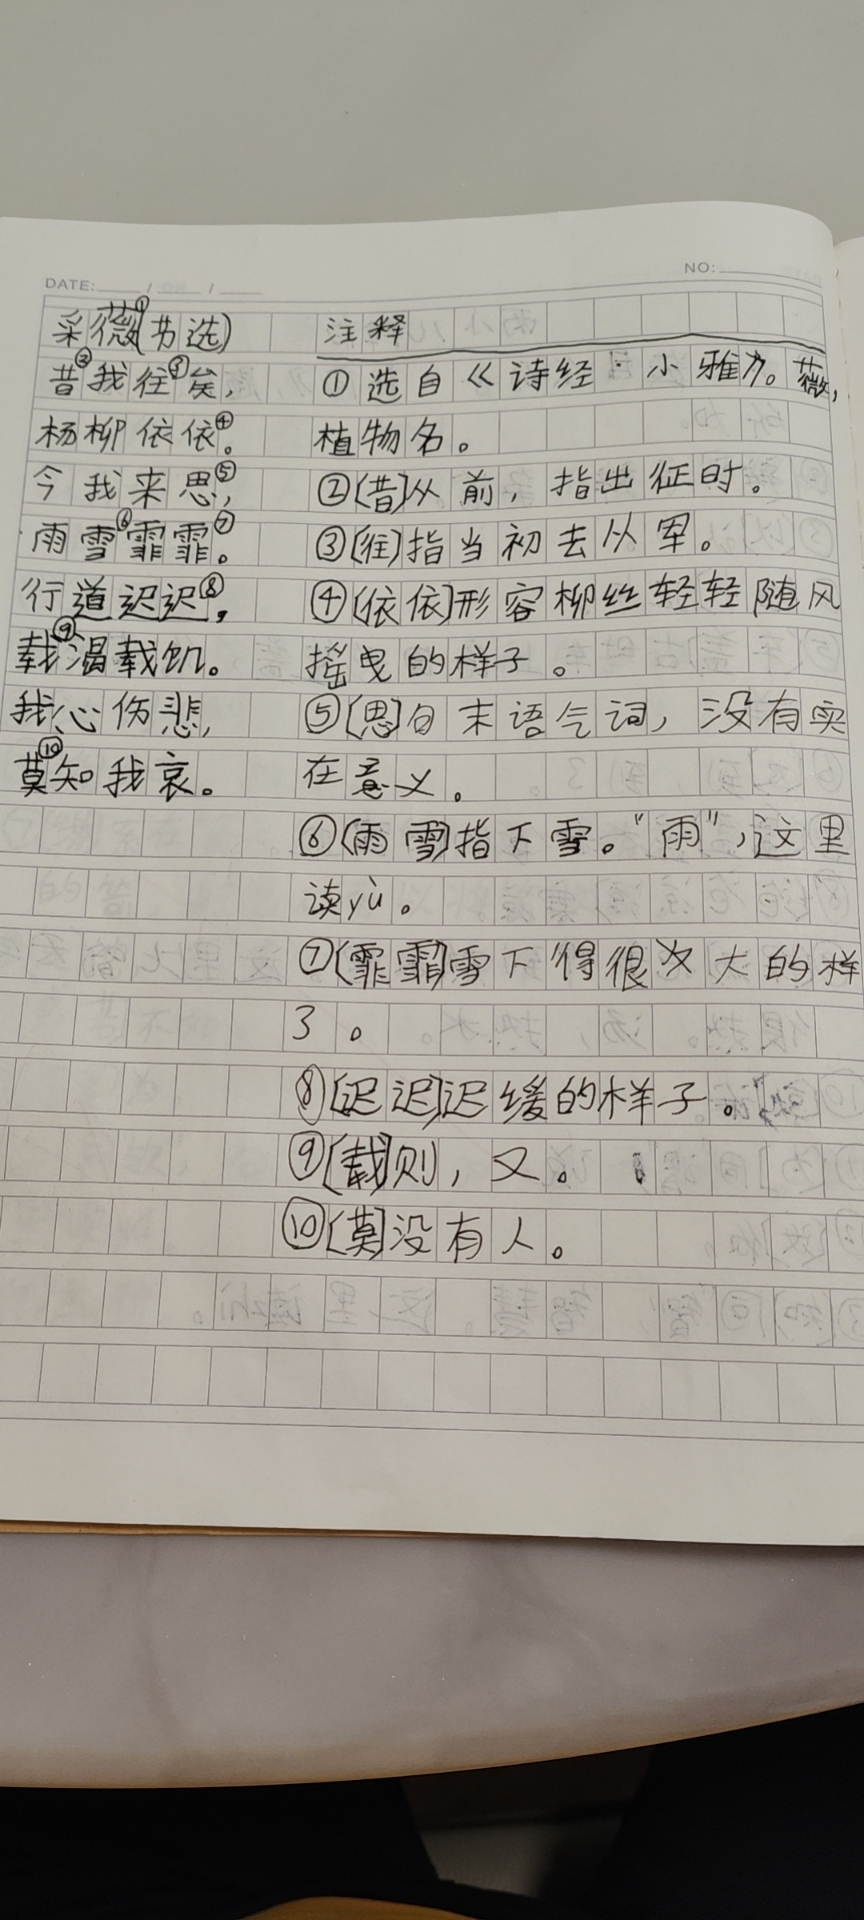 DATE: / /
NO:
采薇①(节选)
昔②我往③矣,
杨柳依依④。
今我来思⑤,
雨雪⑥霏霏⑦。
行道迟迟⑧,
载⑨渴载饥。
我心伤悲,
莫⑩知我哀。
注释
①选自《诗经·小雅》。薇,
植物名。
②[昔]从前,指出征时。
③[往]指当初去从军。
④[依依]形容柳丝轻轻随风
摇曳的样子。
⑤[思]句末语气词,没有实
在意义。
⑥[雨雪]指下雪。“雨”,这里
读yù。
⑦[霏霏]雪下得很大的样
子。
⑧[迟迟]迟缓的样子。
⑨[载]则,又。
⑩[莫]没有人。